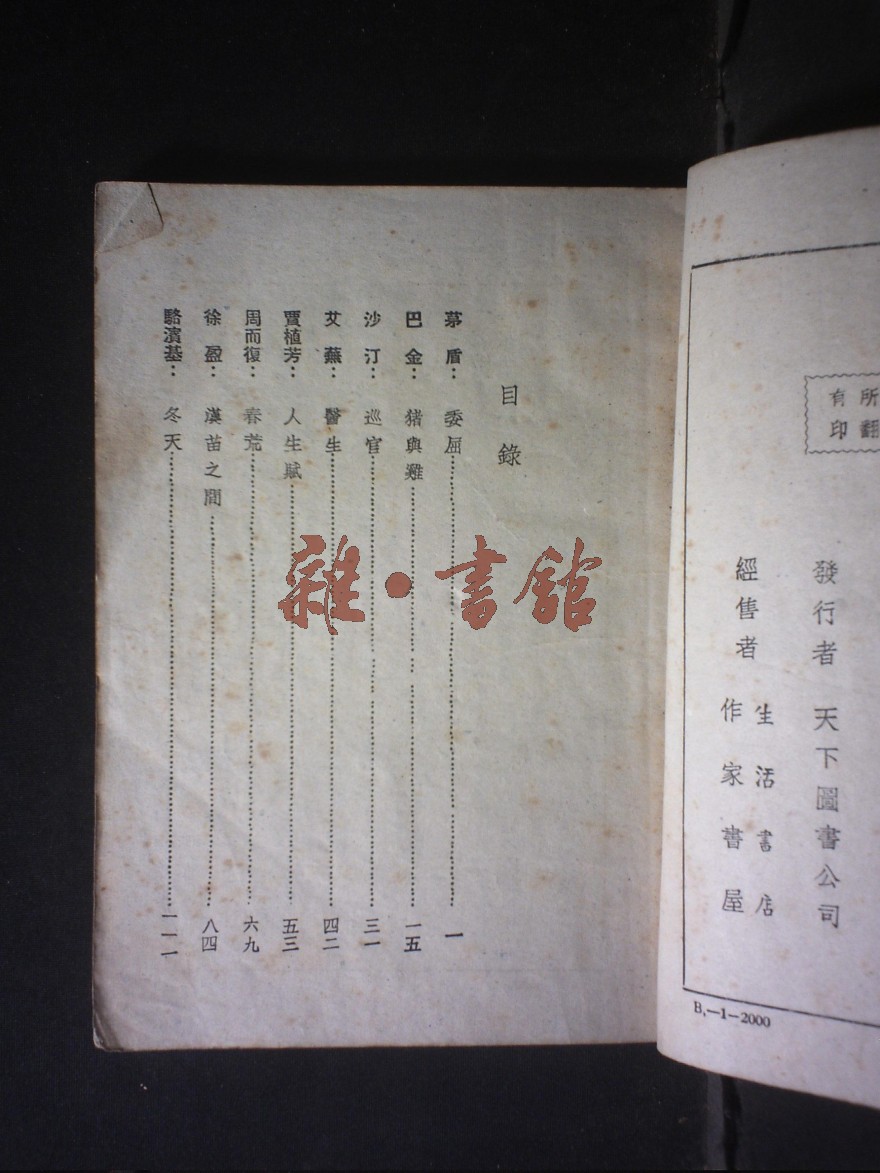 所
翻
有
印
發行者 天下圖書公司
經售者 生活書店
作家書屋
B.—1—2000
目錄
茅盾：委屈……一
巴金：猪與雞……一五
沙汀：巡官……三一
艾蕪：醫生……四二
賈植芳：人生賦……五三
周而復：春荒……六九
徐盈：漢苗之間……八四
駱濱基：冬天……一一一
雜·書館